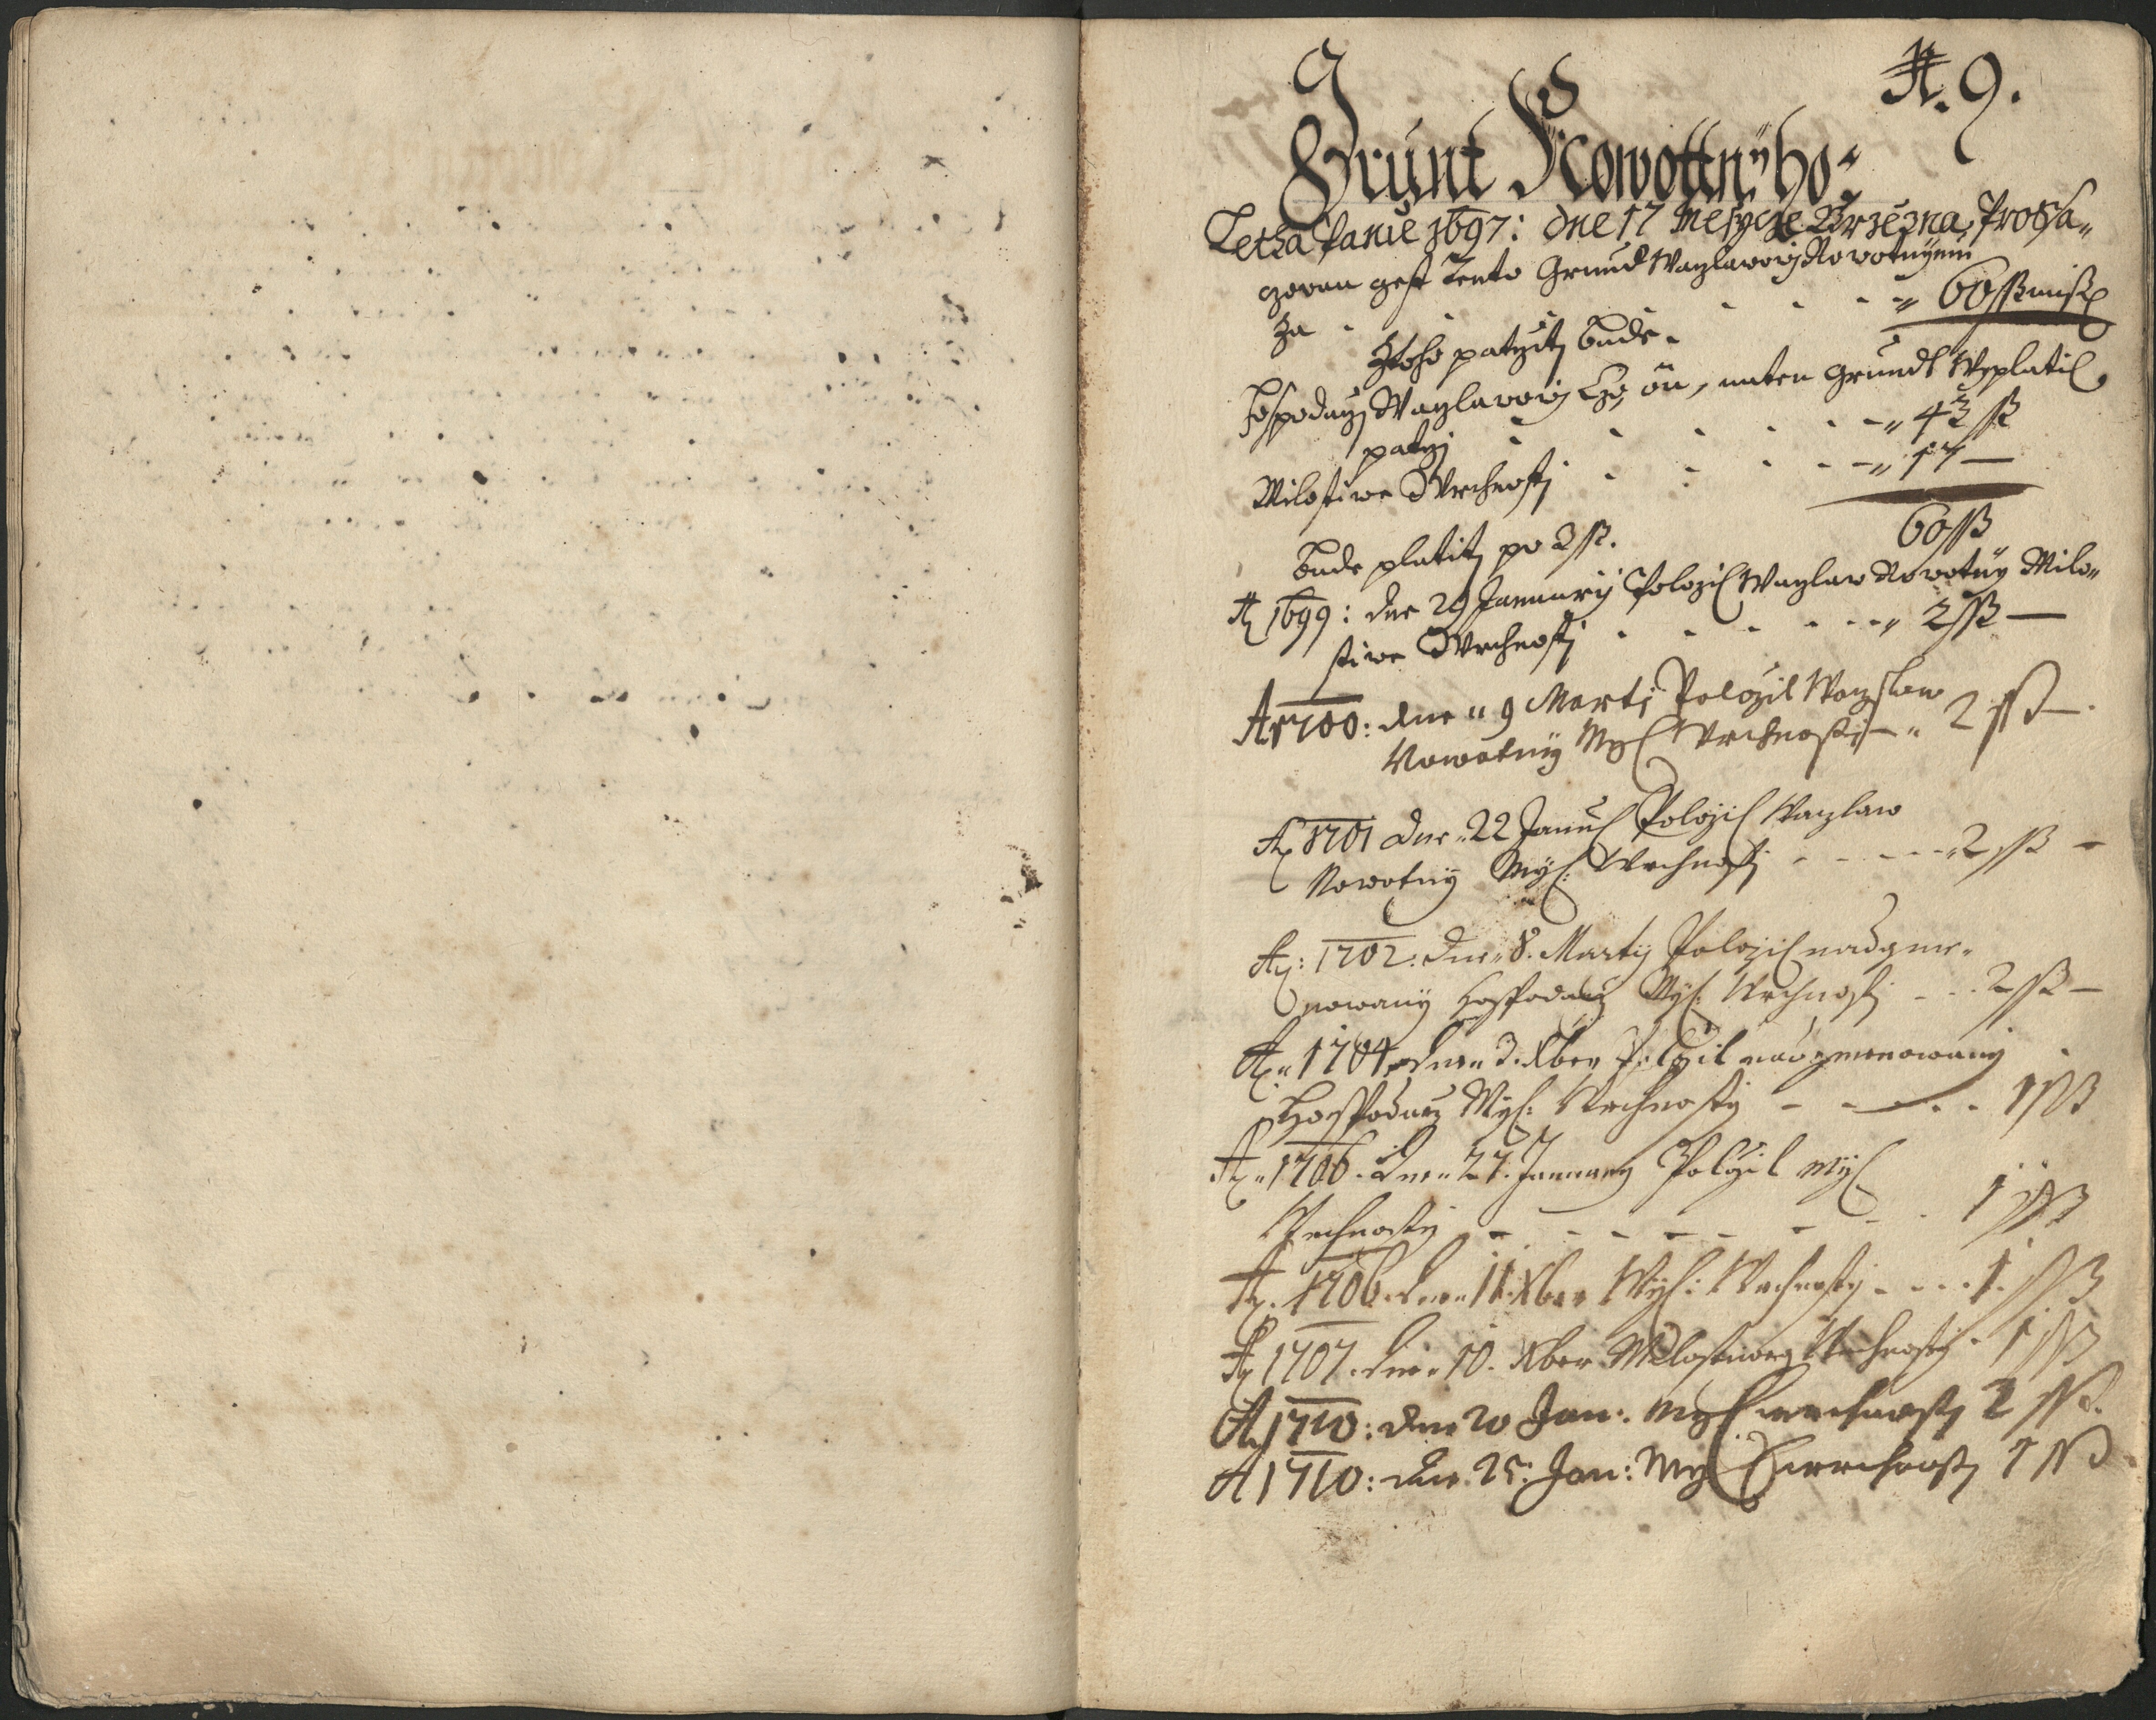 N. 9.
Grunt Nowottnÿho
Letha Panie 1697: dne 17 Mesycze Brzezna, Prossa-
czovan gest tento Grundt Waczlawowj Nowotnÿmu
Za - - - - 60 ß miß
Z toho patrzitj bude.
Hospodarzj Waczlawowj Czo on, na ten grundt Wyplatil
patrzj - - - - 43 ß
Milostiwe Wrchnostj - - - - 17 —
60 ß
Bude platitj po 2 ß.
A 1699: dne 29 Januarij Položil Waczlaw Nowotnÿ Milo-
stiwe Wrchnostj - - - - 2 ß —
A 1700: dne 9 Martj Položil Waczlaw
Nowotnÿ Myl Wrchnostj — 2 ß —
A 1701 dne 22 Janu Položil Waczlaw
Nowotnÿ Myl: Wrchnostj - - - - 2 ß —
A: 1702: dne 8. Martij Položil nadgme-
nowanÿ Hospodarz Myl: Wrchnostj - - 2 ß —
A 1704 dne 3. Xber Položil nadgmenowanÿ
Hospodarz Myl: Wrchnostÿ - - - - 1 ß
A 1706. dne 27. January Položil Myl
Wrchnostÿ - - - - 1 ß
A. 1706. dne 11 Xber Myl: Wrchnostÿ - - - 1 ß
A 1707. dne 10. Xber Milostiweg Wrchnostÿ - 1 ß
A 1710: dne 20 Jan: Myl wrchnostj 2 ß.
A 1710: dne 25: Jan: Myl wrchnostj 1 ß